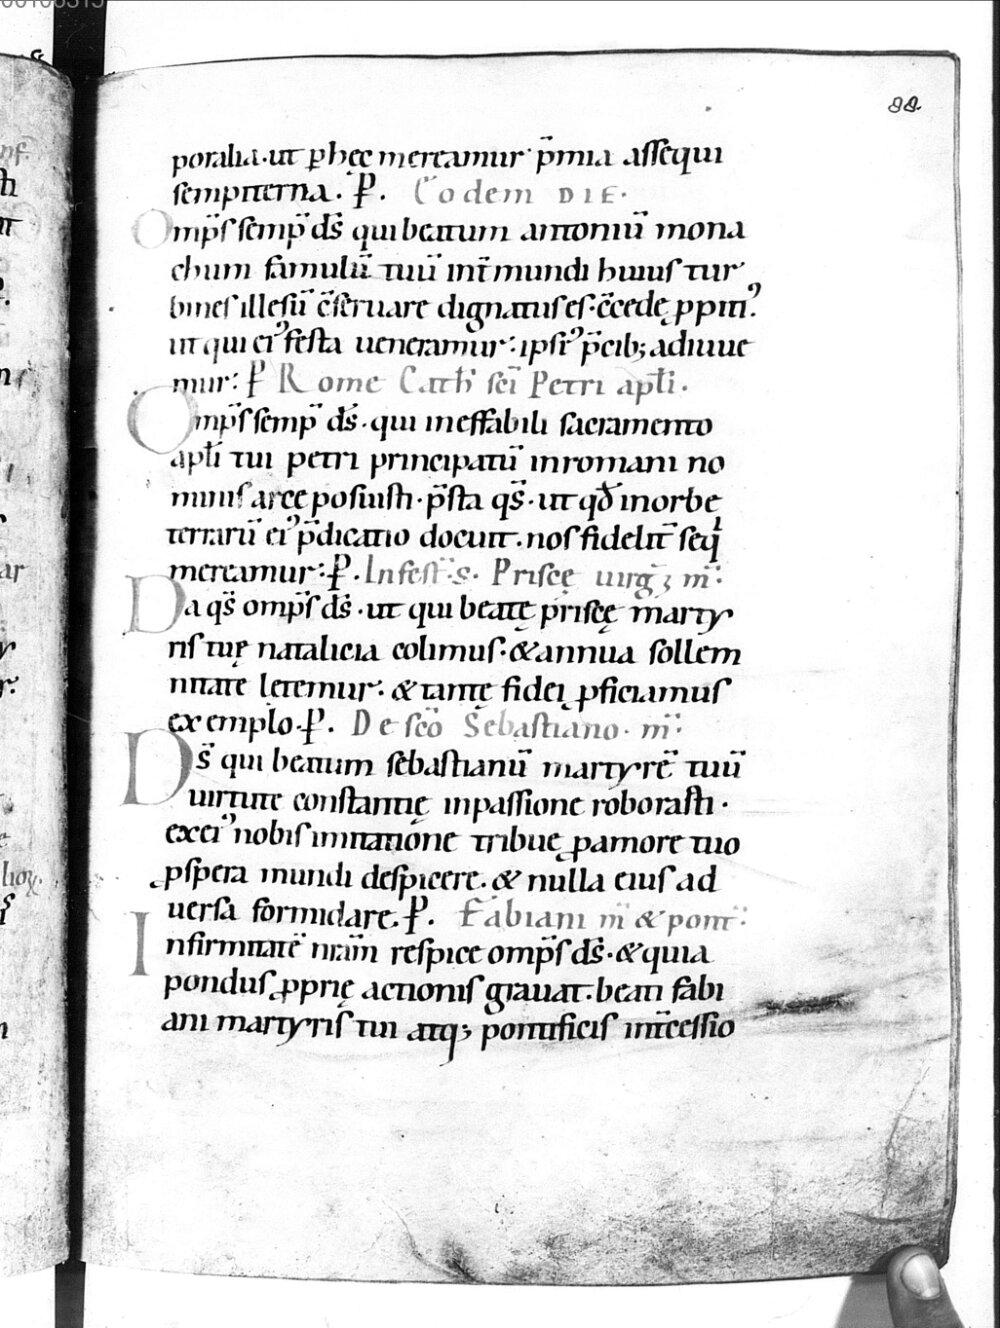 88.
poralia·ut ꝑhęc mereamur p̄mia assequi
sempiterna. P̄. Eodem DIE.
Omp̄s semp̄ ds̄ qui beatum antoniū mona
chum famulū tuū int̄ mundi huius tur
bines illesū c̄seruare dignatus es·c̄cede ꝓpiti᾿
ut qui ei᾿ festa ueneramur: ipsi᾿ p̄cib; adiuue
mur: P̄ Rome Cath̄ sc̄i Petri apłi.
Omp̄s semp̄ ds̄·qui ineffabili sacramento
apłi tui petri principatū inromani no
minis arce posuisti·p̄sta qs̄·ut qd̄ inorbe
terrarū ei᾿ p̄dicatio docuit. nos fidelit̄ seqⁱ
mereamur: P̄. Infest̄·S· Priscę uirḡ; m̄:
Da qs̄ omp̄s ds̄·ut qui beatę priscę marty
ris tuę natalicia colimus·&annua sollem
nitate letemur·&tantę fidei ꝓficiamus
exemplo·P̄. De sc̄o Sebastiano·m̄:
Ds̄ qui beatum sebastianū martyrē tuū
uirtute constantię inpassione roborasti·
exei᾿ nobis imitatione tribue ꝓamore tuo
ꝓspera mundi despicere·& nulla eius ad
uersa formidare. P̄. Fabiani m̄ & pont̄:
Infirmitatē nrām respice omp̄s ds̄·&quia
pondus ꝓprię actionis grauat·beati fabi
ani martyris tui atq; pontificis int̄cessio